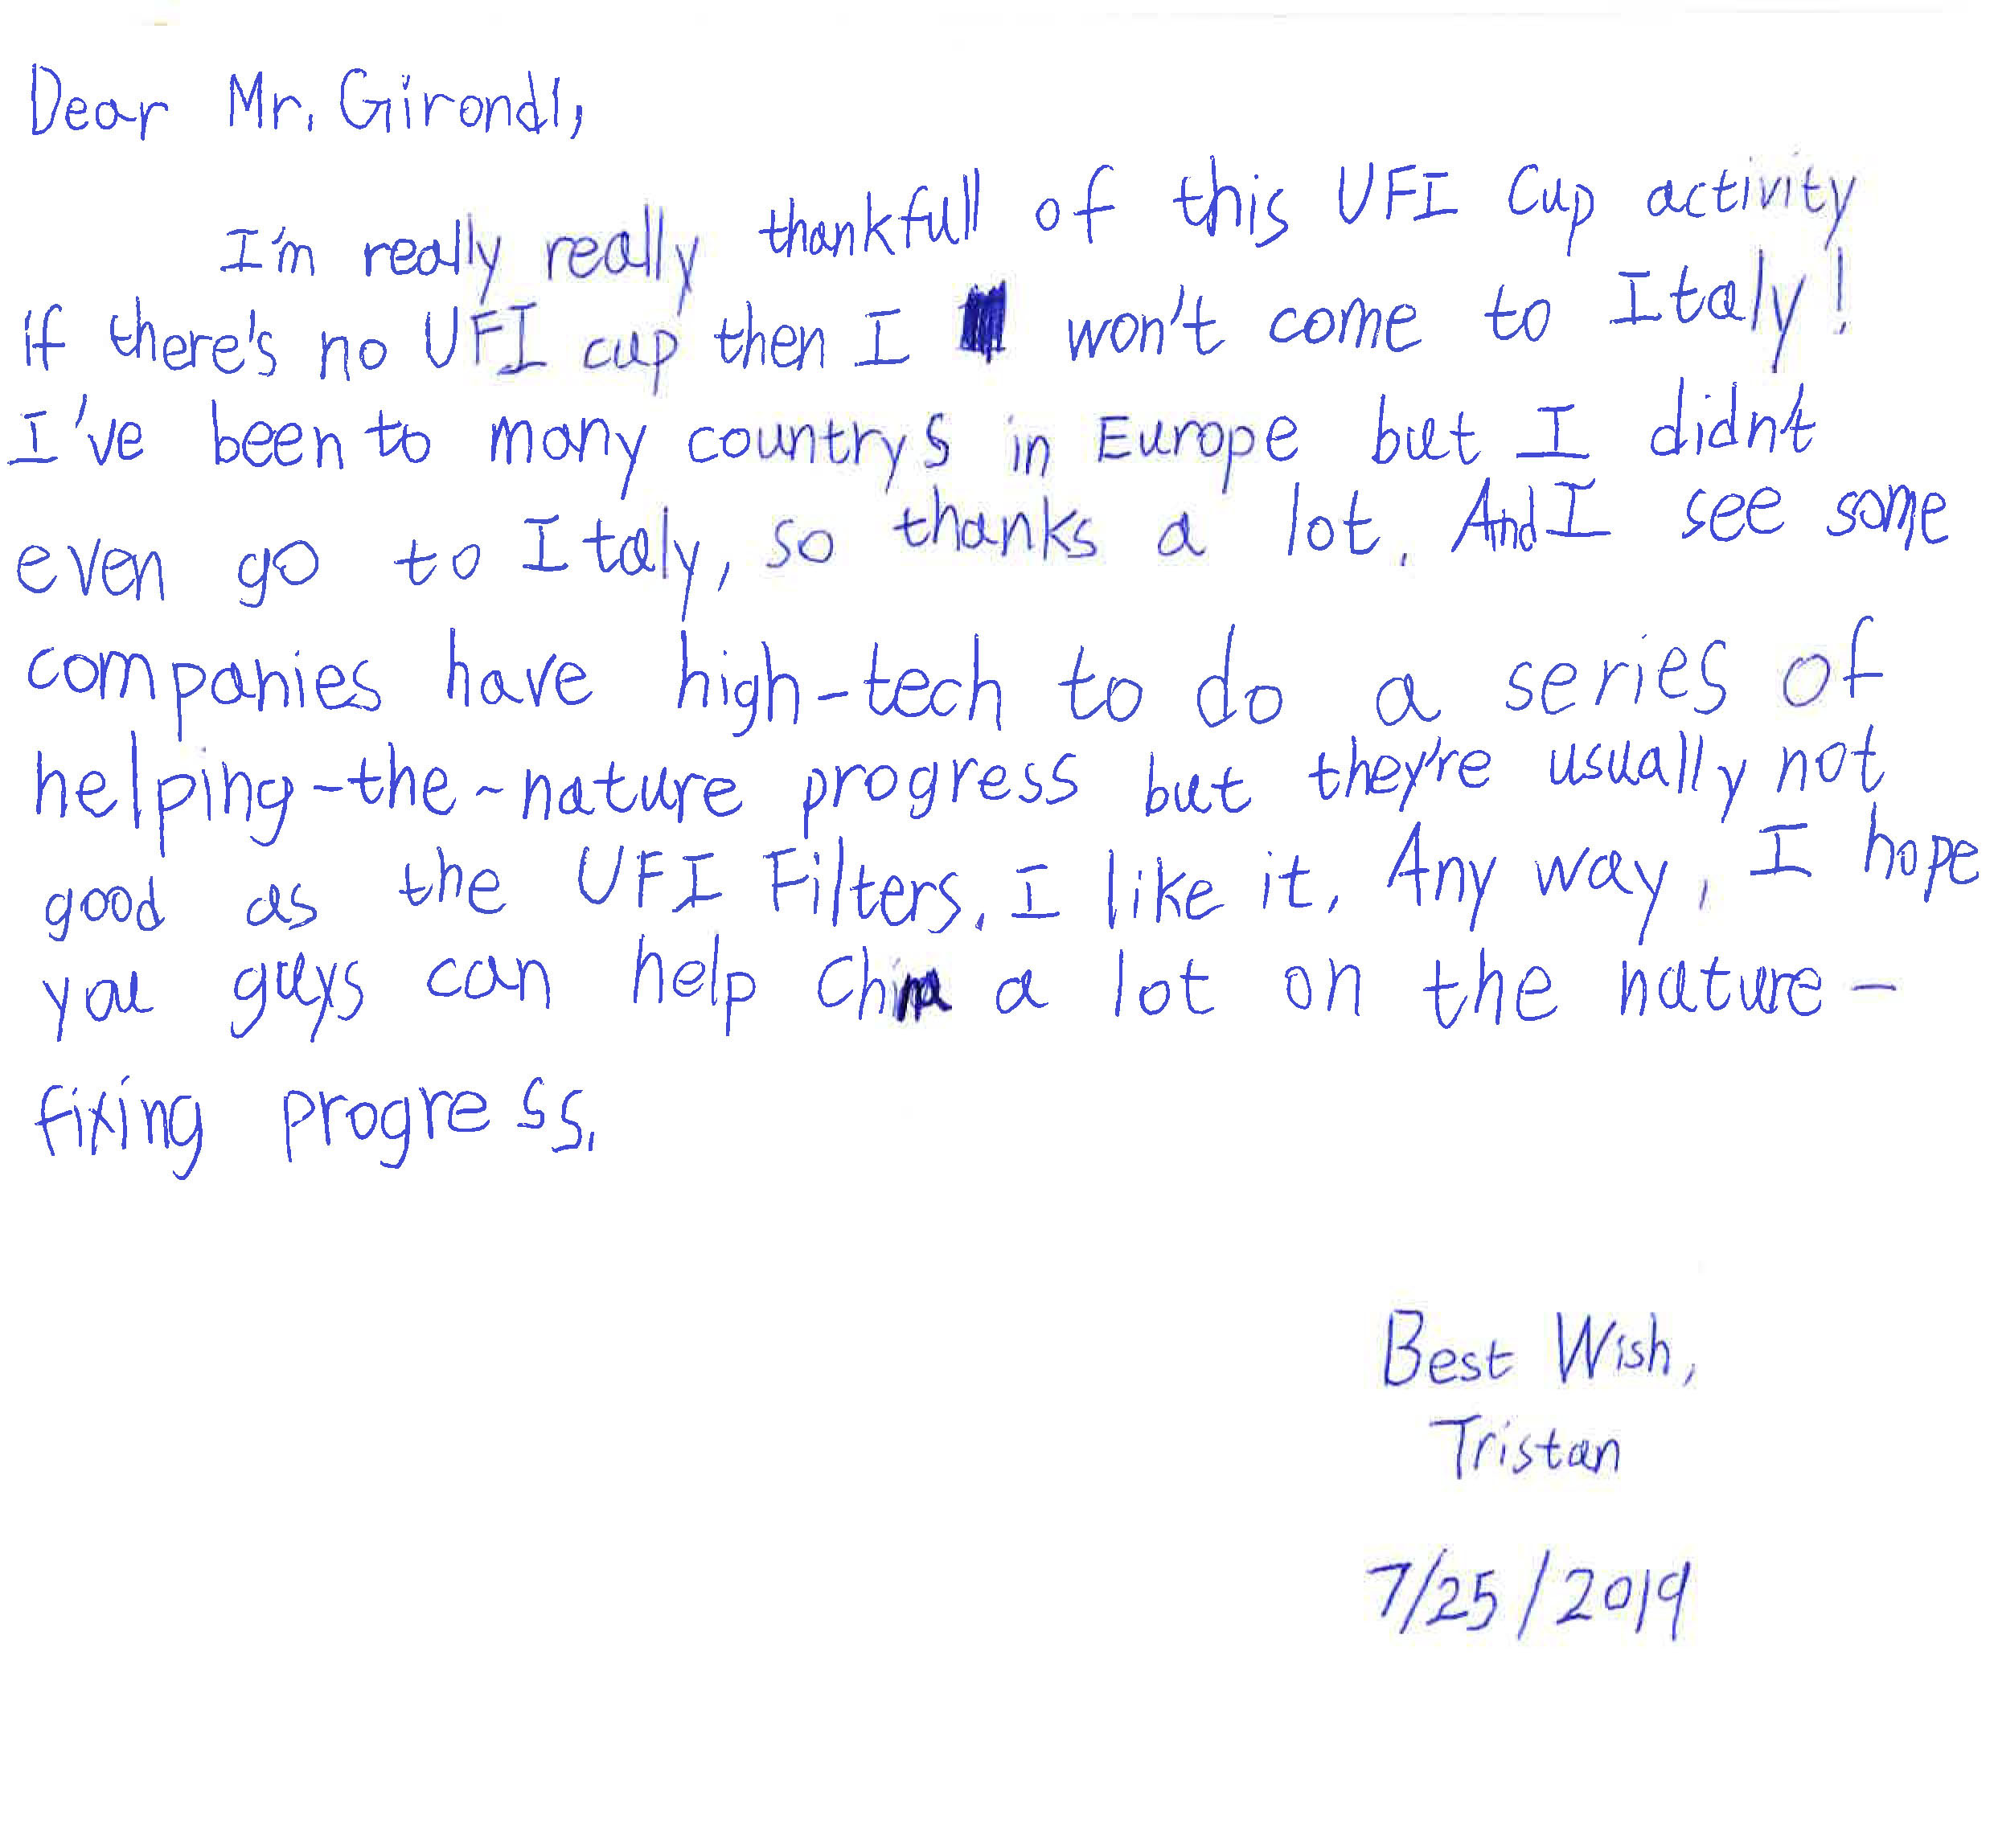 Dear Mr. Girondi,
I'm really really thankfull of this UFI Cup activity
if there's no UFI cup then I won't come to Italy!
I've been to many countrys in Europe but I didn't
even go to Italy, so thanks a lot. And I see some
companies have high-tech to do a series of
helping-the-nature progress but they're usually not
good as the UFI Filters. I like it. Any way, I hope
you guys can help China a lot on the nature-
fixing progress.
Best Wish,
Tristan
7/25/2019